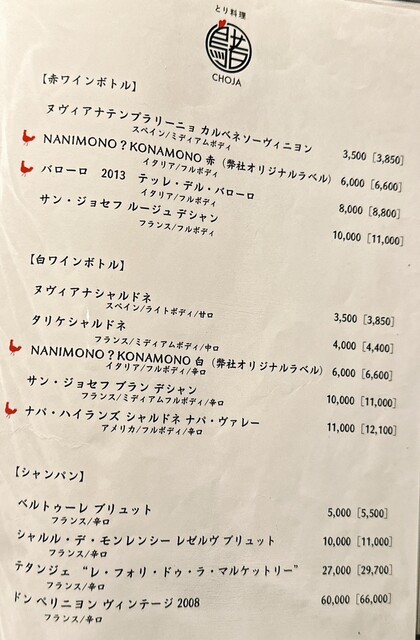 とり料理
CHOJA
【赤ワインボトル】
ヌヴィアナテンプラリーニョ カルベネソーヴィニヨン 3,500 [3,850]
スペイン/ミディアムボディ
NANIMONO?KONAMONO 赤（弊社オリジナルラベル） 6,000 [6,600]
イタリア/フルボディ
バローロ 2013 テッレ・デル・バローロ 8,000 [8,800]
イタリア/フルボディ
サン・ジョセフ ルージュ デシャン 10,000 [11,000]
フランス/フルボディ
【白ワインボトル】
ヌヴィアナシャルドネ 3,500 [3,850]
スペイン/ライトボディ/甘口
タリケシャルドネ 4,000 [4,400]
フランス/ミディアムボディ/中口
NANIMONO?KONAMONO 白（弊社オリジナルラベル） 6,000 [6,600]
イタリア/フルボディ/辛口
サン・ジョセフ ブラン デシャン 10,000 [11,000]
フランス/ミディアムフルボディ/辛口
ナパ・ハイランズ シャルドネ ナパ・ヴァレー 11,000 [12,100]
アメリカ/フルボディ/辛口
【シャンパン】
ベルトゥーレ ブリュット 5,000 [5,500]
フランス/辛口
シャルル・デ・モンレンシー レゼルヴ ブリュット 10,000 [11,000]
フランス/辛口
テタンジェ “レ・フォリ・ドゥ・ラ・マルケットリー” 27,000 [29,700]
フランス/辛口
ドン ペリニヨン ヴィンテージ 2008 60,000 [66,000]
フランス/辛口